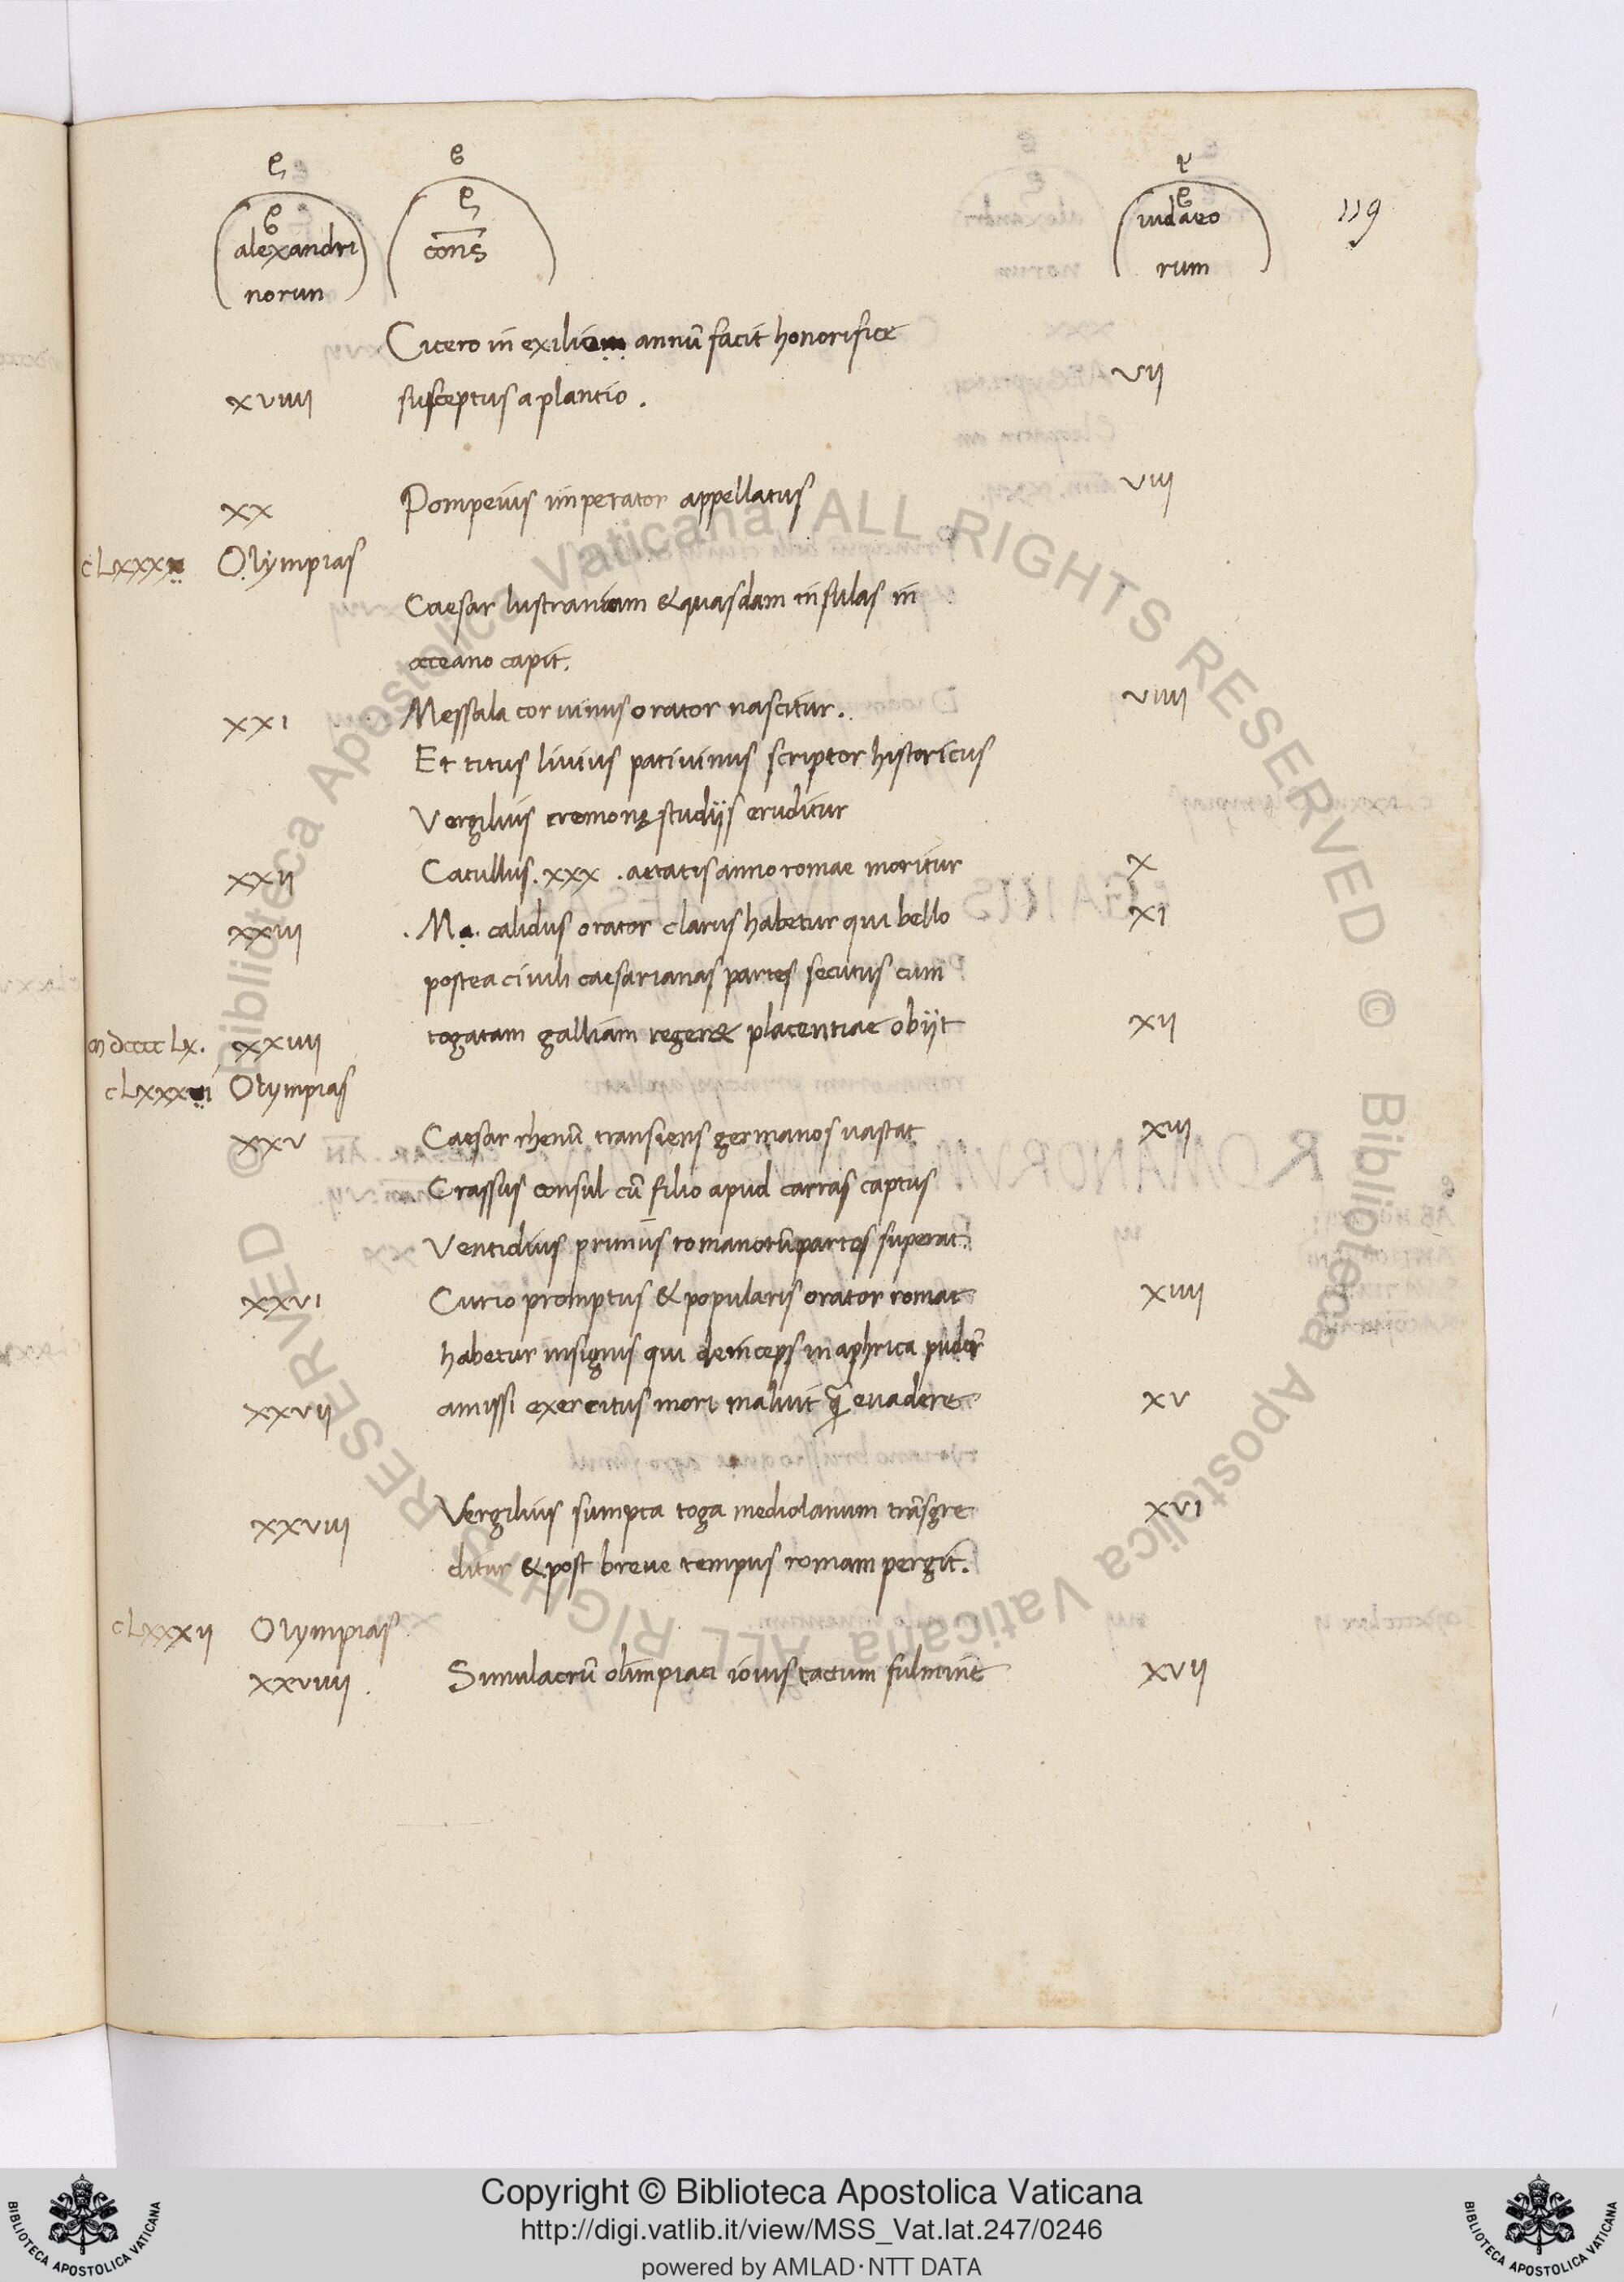 119
alexandri
norun
cons̅
iudaeo
rum
Cicero in exilium annū facit honorifice
xviiii susceptus a plantio. vii
xx Pompeius imperator appellatus viii
clxxxx Olympias
Caesar lustraniam & quasdam insulas in
oceano capit.
xxi Messala coruinus orator nascitur. viiii
Et titus liuius pativinus scriptor historicus
Vergilius cremonę studijs eruditur
xxii Catullus. xxx. aetatis anno romae moritur x
xxiii .M. calidus orator clarus habetur qui bello xi
postea ciuili caesarianas partes secutus cum
mdccccLx. xxiiii togatam galliam regeret placentiae obijt xii
clxxxi Olympias
xxv Caesar rhenū transiens germanos uastat xiii
Crassus consul cū filio apud carras captus
Ventidius primus romanorū partos superat.
xxvi Curio promptus & popularis orator romae xiiii
habetur insignis qui deinceps in aphrica pudor
xxvii amissi exercitus mori maluit q̄ euadere xv
xxviii Vergilius sumpta toga mediolanum trāsgre xvi
ditur & post breue tempus romam pergit.
clxxxii Olympias
xxviiii. Simulacrū olimpiaci iouis tactum fulmine xvii
© Biblioteca Apostolica Vaticana ALL RIGHTS RESERVED
© Biblioteca Apostolica Vaticana ALL RIGHTS RESERVED
Copyright © Biblioteca Apostolica Vaticana
http://digi.vatlib.it/view/MSS_Vat.lat.247/0246
powered by AMLAD·NTT DATA
BIBLIOTECA APOSTOLICA VATICANA
BIBLIOTECA APOSTOLICA VATICANA